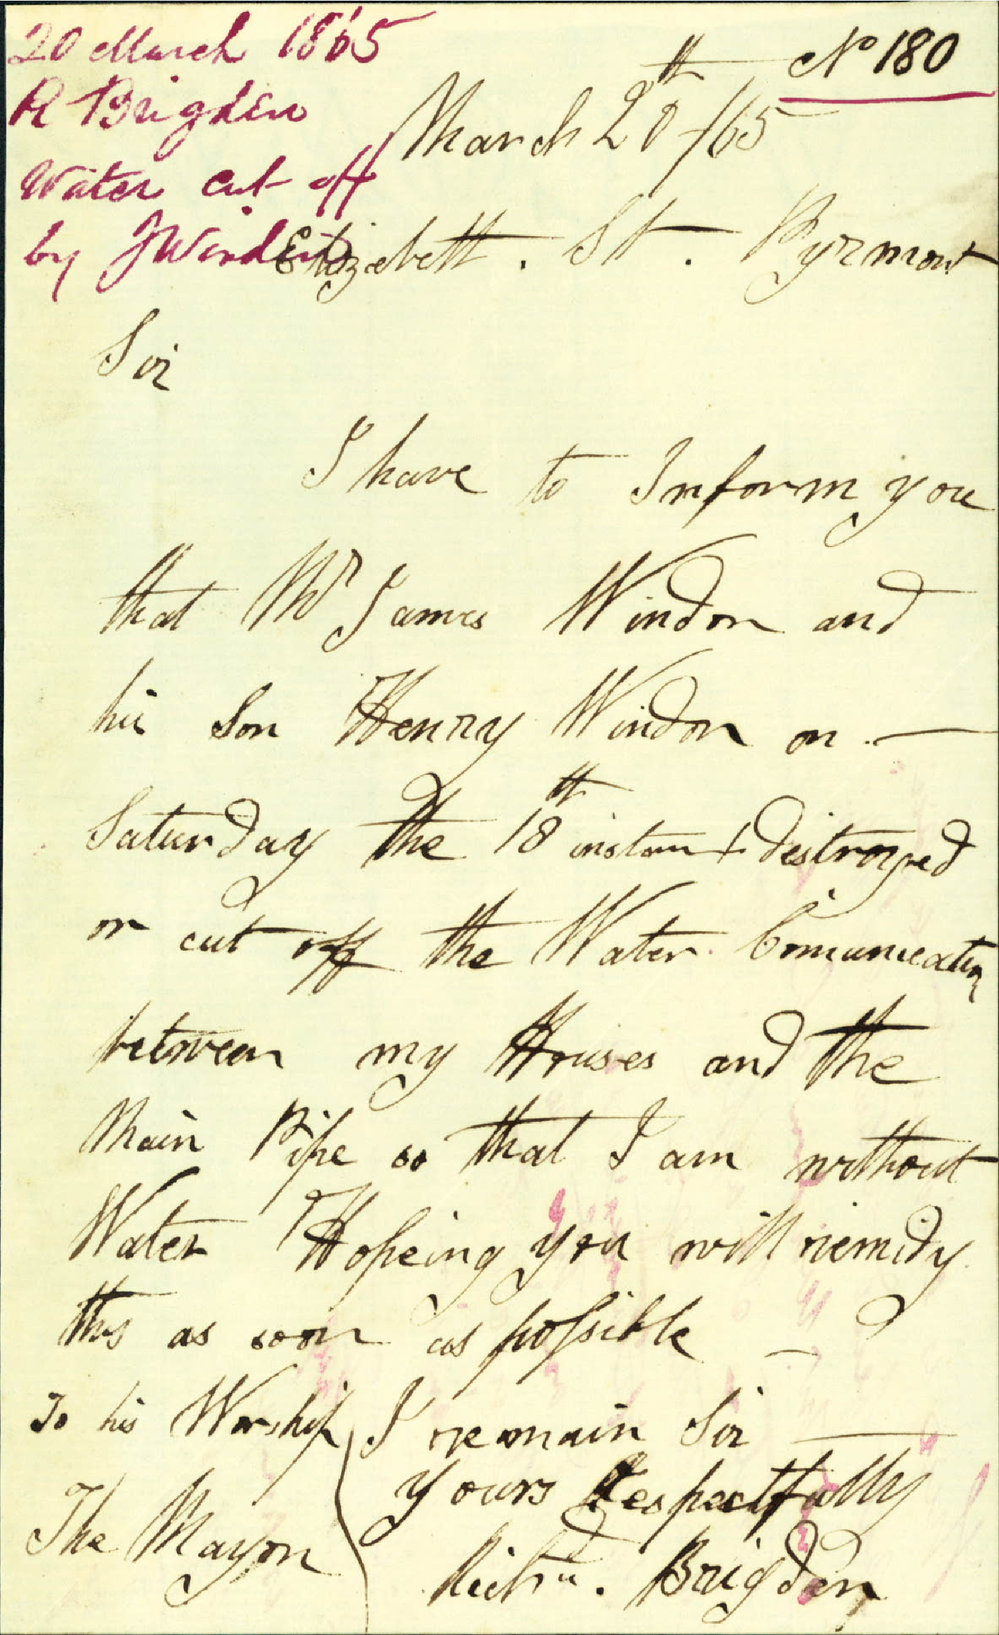 20 March 1865
R Brigden
Water cut off
by J Windon
No 180
March 20th /65
Elizabeth . St . Pyrmont
Sir
I have to Inform you
that Mr James Windon and
his Son Henry Windon on —
Saturday the 18th instant destroyed
or cut off the Water Comunication
between my Houses and the
Main Pipe so that I am without
Water Hopeing you will remidy
this as soon as possible —
I remain Sir —
yours Respectfully
Richd. Brigden
To his Worship
The Mayor